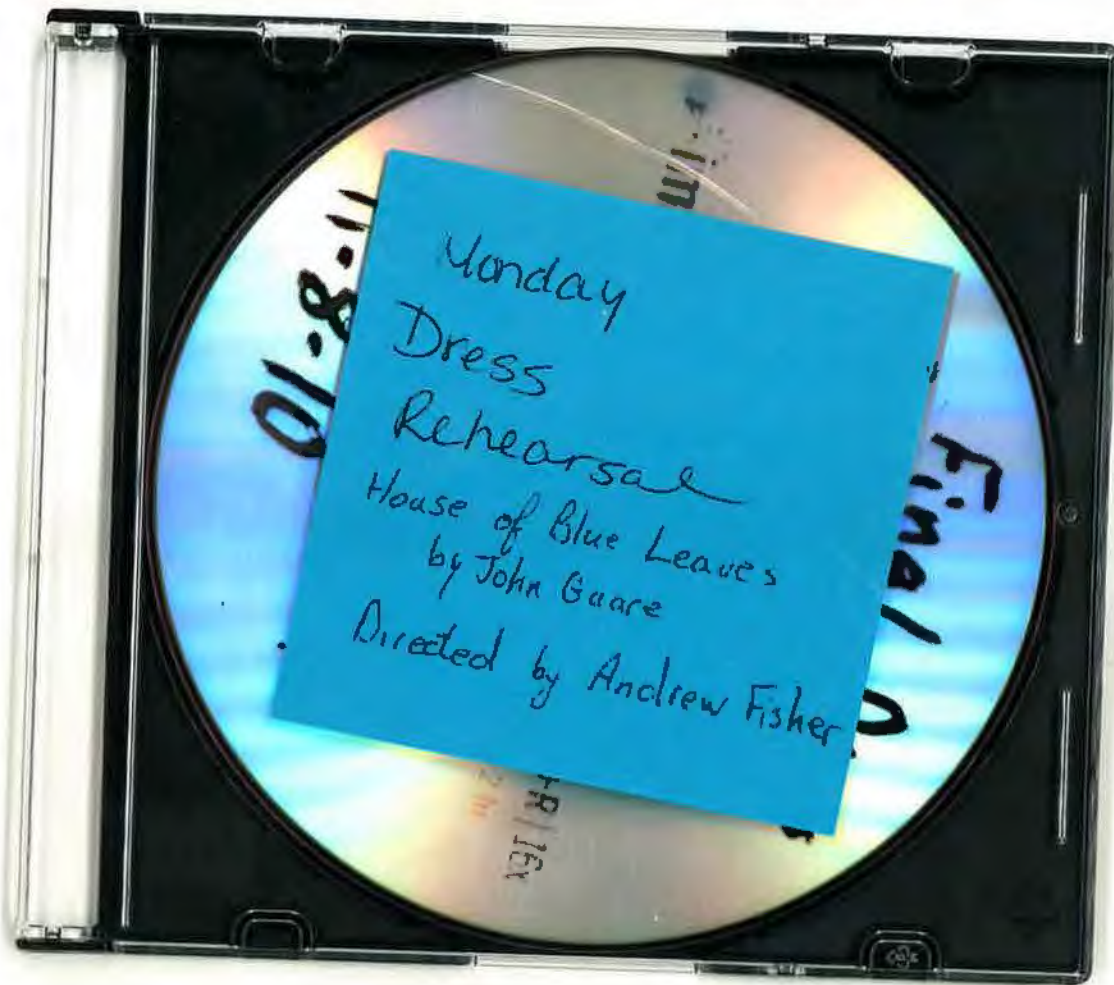 Monday
Dress
Rehearsal
House of Blue Leaves
by John Guare
Directed by Andrew Fisher
10-8-11
Final
+R/16x